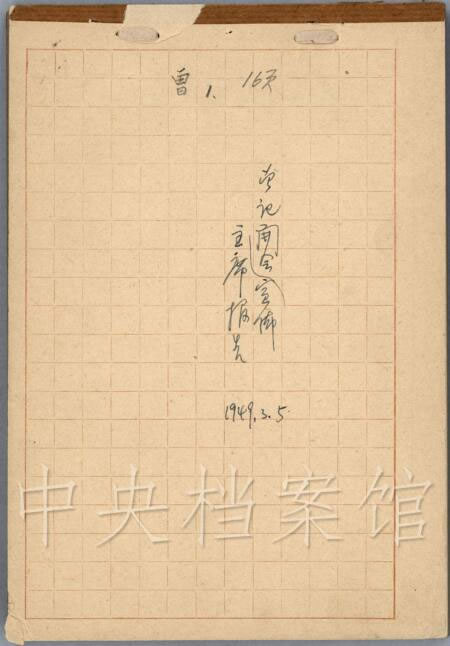 曾1. 16页
书记开会宣佈
主席报告
1949.3.5.
中央档案馆